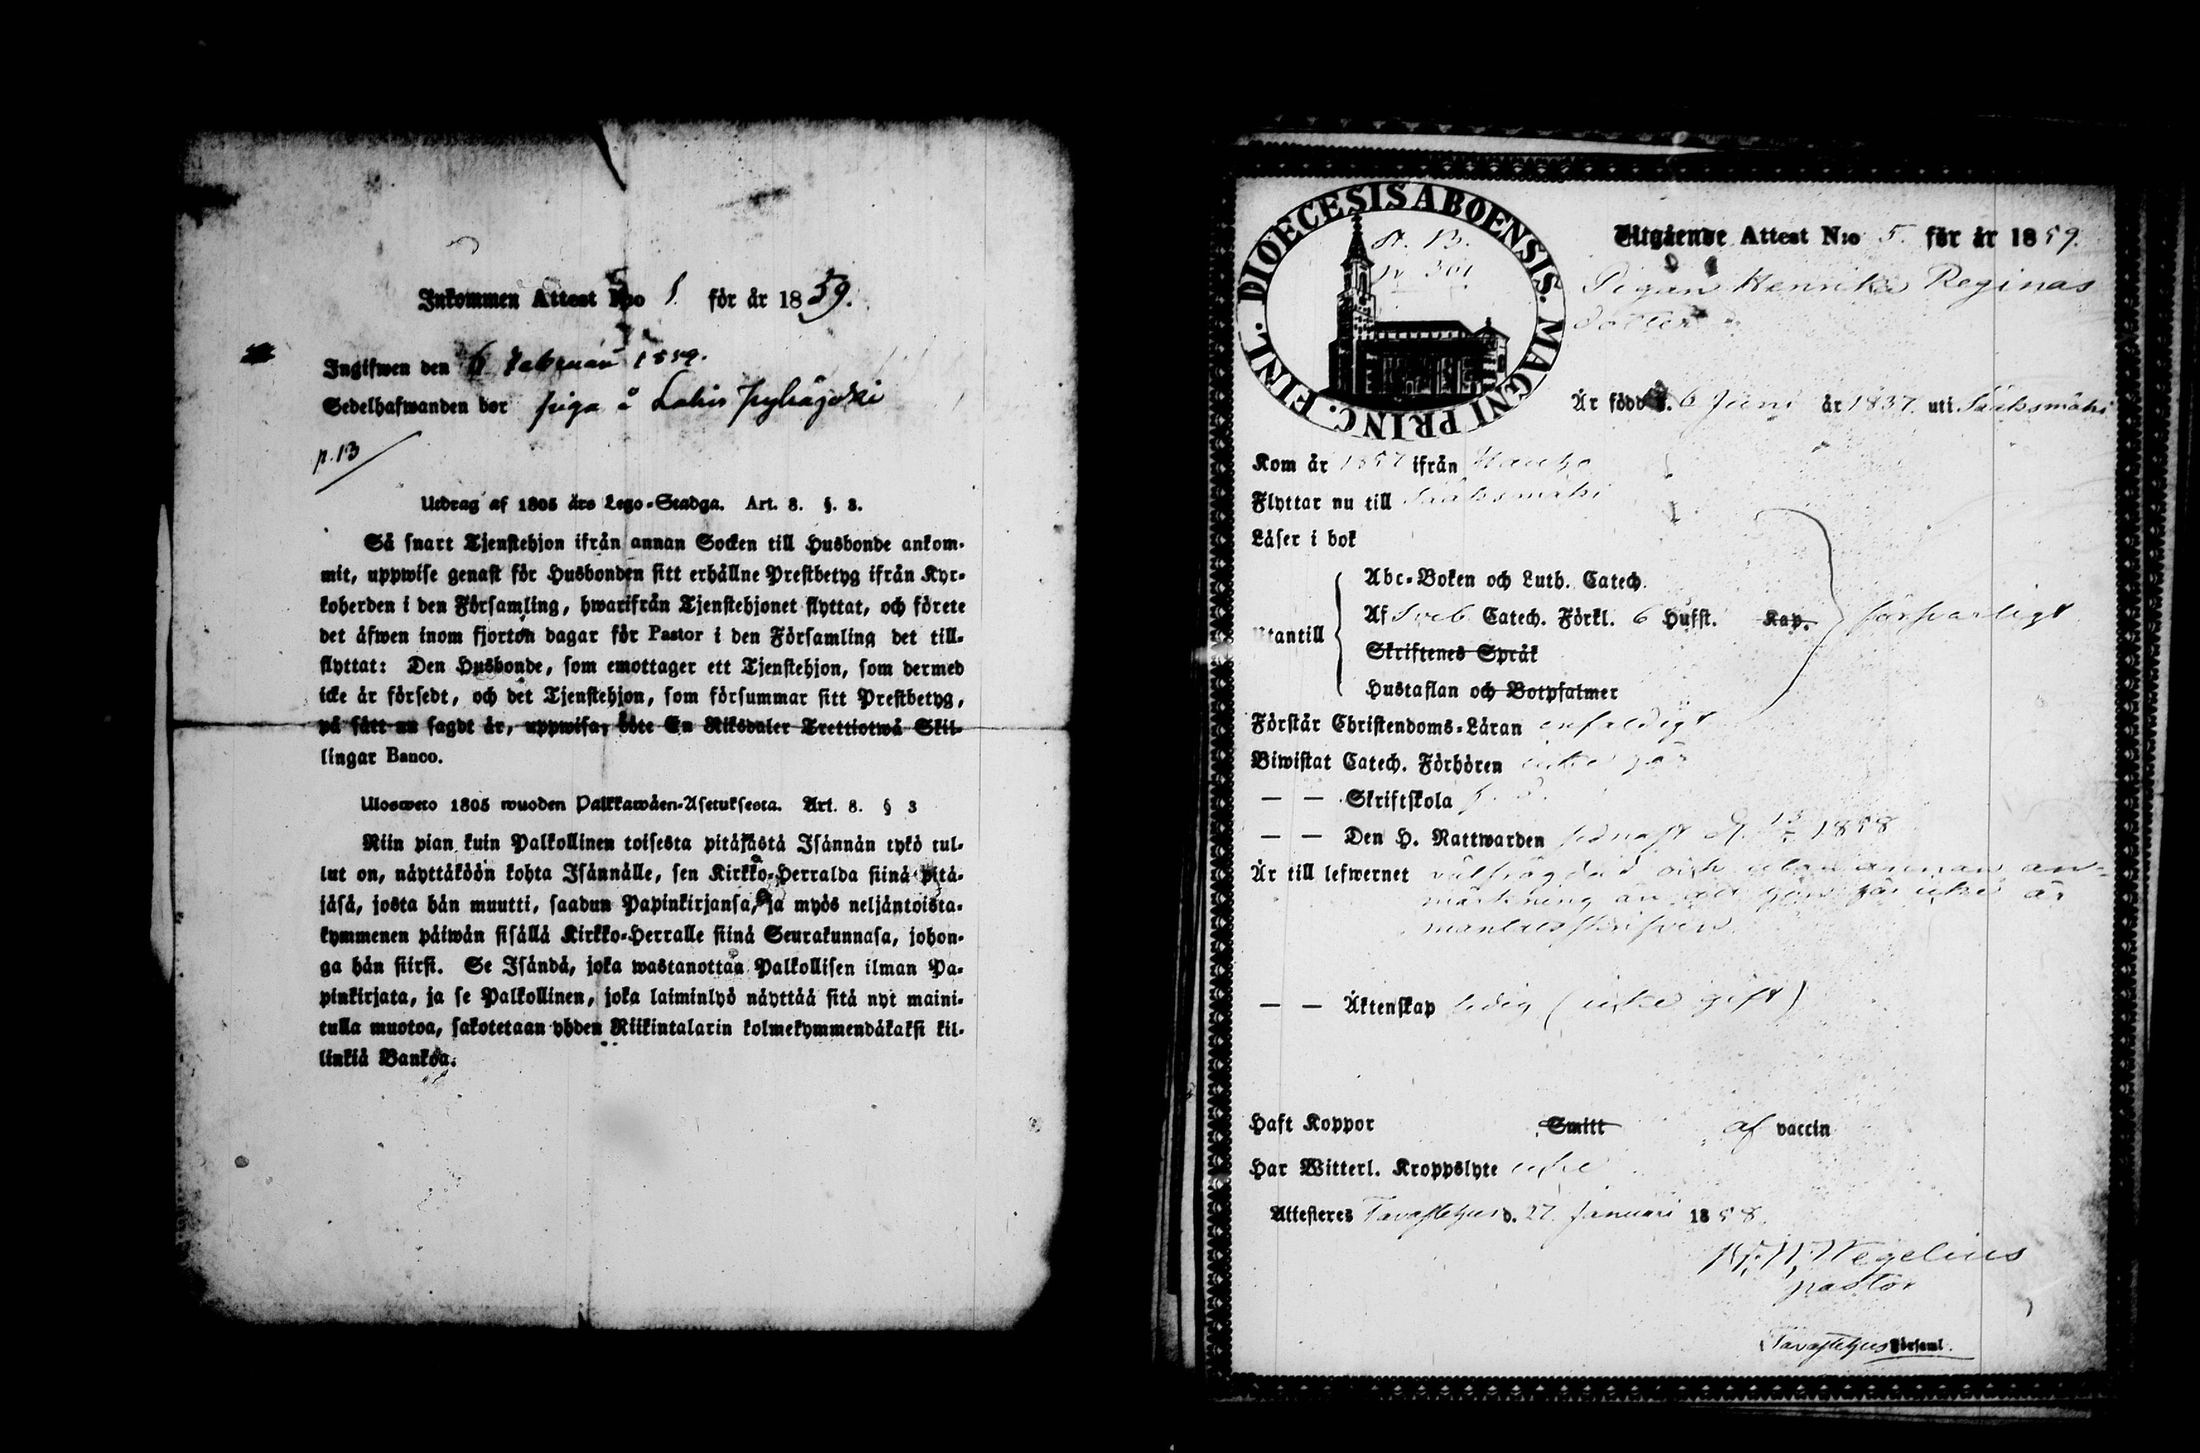 Inkommen Attest N:o 1. för år 1859.
Ingifwen den 6 Februari 1859.
Sedelhafwanden bor piga å Lahis Pyhäjoki
p. 13
Utdrag af 1805 års Lego-Stadga. Art. 8. §. 3.
Så snart Tjenstehjon ifrån annan Socken till Husbonde ankom-
mit, uppwise genast för Husbonden sitt erhållne Prestbetyg ifrån Kyr-
koherden i den Församling, hwarifrån Tjenstehjonet flyttat, och förete
det äfwen inom fjorton dagar för Pastor i den Församling det till-
flyttat: Den Husbonde, som emottager ett Tjenstehjon, som dermed
icke är försedt, och det Tjenstehjon, som försummar sitt Prestbetyg,
på sätt nu sagdt är, uppwisa, böte En Riksdaler Trettiotwå Skil-
lingar Banco.
Ulosweto 1805 wuoden Palkkawäen-Asetuksesta. Art. 8. § 3
Niin pian kuin Palkollinen toisesta pitäjästä Isännän tykö tul-
lut on, näyttäköön kohta Isännälle, sen Kirkko-Herralda siinä pitä-
jäsä, josta hän muutti, saadun Papinkirjansa, ja myös neljäntoista-
kymmenen päiwän sisällä Kirkko-Herralle siinä Seurakunnasa, johon-
ga hän siirsi. Se Isändä, joka wastanottaa Palkollisen ilman Pa-
pinkirjata, ja se Palkollinen, joka laiminlyö näyttää sitä nyt maini-
tulla muotoa, sakotetaan yhden Riikintalarin kolmekymmendäkaksi kil-
linkiä Bankoa.
DIOECESIS ABOENSIS. MAGNI PRINC. FINL.
Utgående Attest N:o 5. för år 1859.
Pigan Henrika Reginas
dotter
Är född d. 6 Juni år 1837. uti Sääksmäki
Kom år 1857 ifrån Hauho
Flyttar nu till Sääksmäki
Läser i bok
Abc-Boken och Luth. Catech.
Utantill Af Sveb Catech. Förkl. 6 Hufst. Kap. försvarligt
Skriftenes Språk
Hustaflan och Botpsalmer
Förstår Christendoms-Läran enfaldigt
Biwistat Catech. Förhören icke
— — Skriftskola
— — Den H. Nattwarden senast d. 1858
Är till lefwernet välfrägdad och utan annan an-
märkning än att hon icke är
mantalsskrifven
— — Äktenskap ledig (icke gift)
Haft Koppor Smitt af vaccin
Har Witterl. Kroppslyte icke
Attesteres Tavastehus d. 27. Januari 1858.
Wegelius
pastor
Tavastehus Församl.